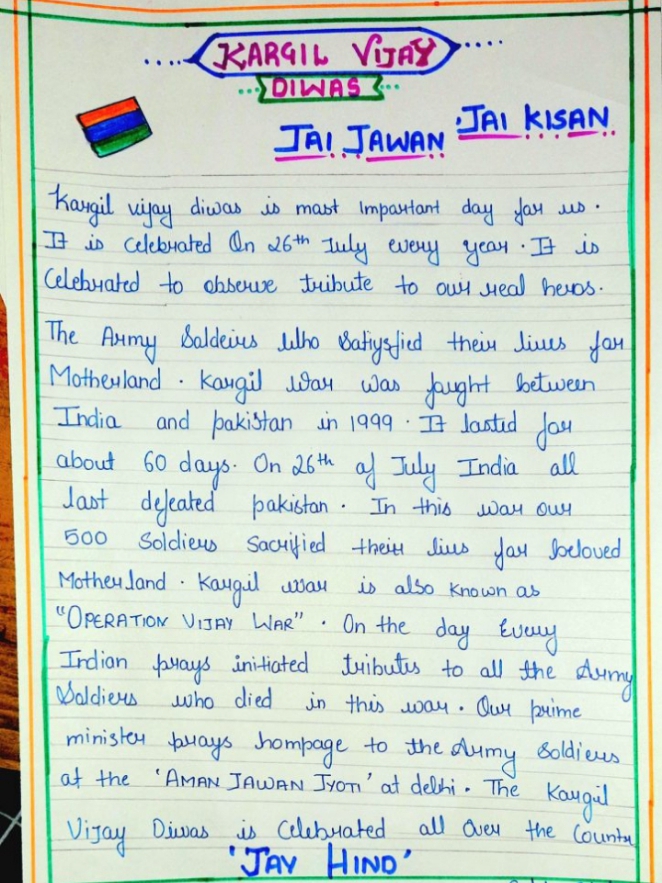 KARGIL VIJAY
DIWAS
JAI JAWAN JAI KISAN
Kargil vijay diwas is mast Important day for us.
It is celebrated On 26th July every year. It is
Celebrated to observe tribute to our real heros.
The Army Saldeirs Who Satiysfied their lives for
Motherland. Kargil War was fought between
India and pakistan in 1999. It lasted for
about 60 days. On 26th of July India all
last defeated pakistan. In this war our
500 Soldiers Sacrified their livs for beloved
Motherland. Kargil war is also known as
"OPERATION VIJAY WAR". On the day Every
Indian prays initiated tributes to all the Army
Soldiers who died in this war. Our prime
minister prays hompage to the Army Soldiers
at the 'AMAN JAWAN JYOTI' at delhi. The Kargil
Vijay Diwas is Celebrated all Over the Countr
'JAY HIND'